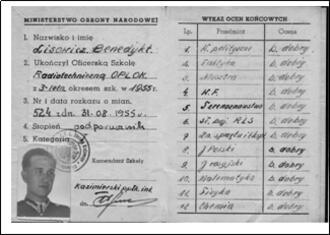 MINISTERSTWO OBRONY NARODOWEJ
1. Nazwisko i imię
Lisowicz Benedykt.
2. Ukończył Oficerską Szkołę
Radiotechniczną OPLOK
z 3-letn. okresem szk. w 1955 r.
3. Nr i data rozkazu o mian.
524 z dn. 31.08.1955 r.
4. Stopień podporucznik
5. Kategoria
Komendant Szkoły
Kazimierski ppłk. inż.
dn.
WYKAZ OCEN KOŃCOWYCH
Lp. Przedmiot Ocena
1 K. polityczne b. dobry
2 Taktyka b. dobry
3 b. dobry
4 W.F. b. dobry
5 Terenoznawstwo b. dobry
6 RLS b. dobry
7 b. dobry
8 J. Polski b. dobry
9 J. rosyjski b. dobry
10 Matematyka b. dobry
11 Fizyka b. dobry
12 Chemia b. dobry